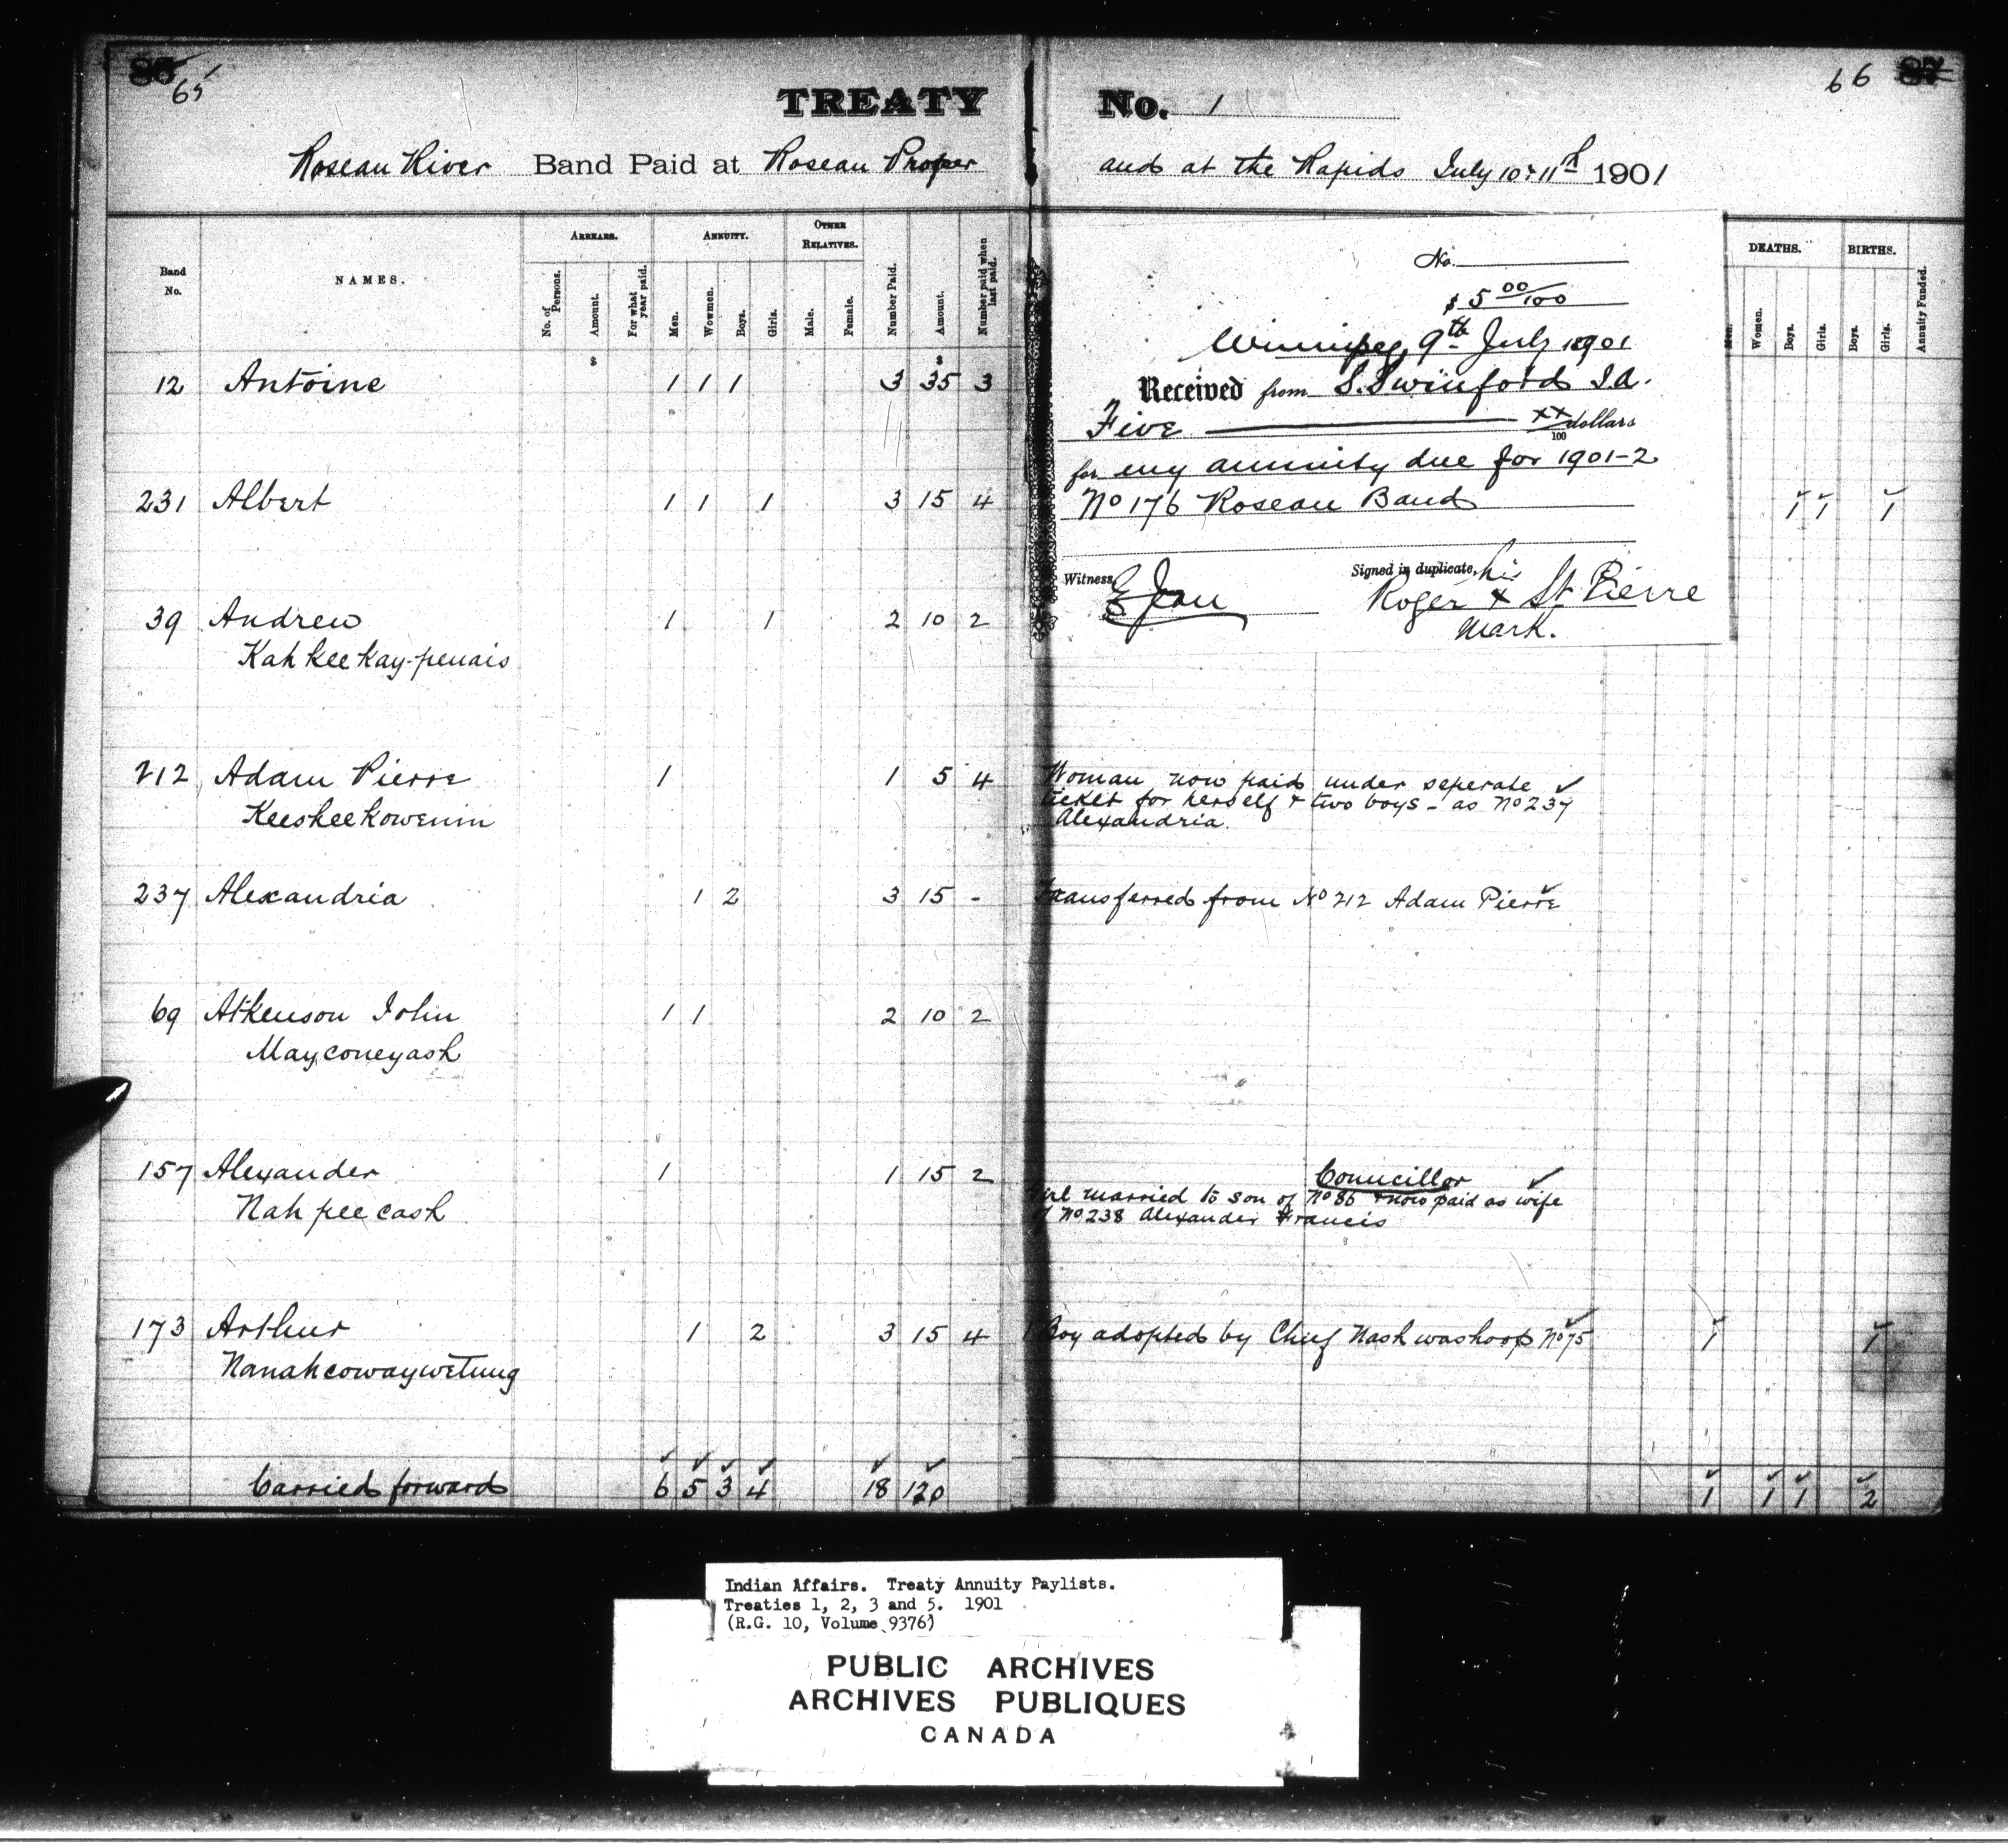 65
TREATY No. 1
66
Roseau River Band Paid at Roseau Proper and at the Rapids July 10 & 11th 1901
Band No.
NAMES.
ARREARS.
No. of Persons.
Amount.
For what year paid.
ANNUITY.
Men.
Wowmen.
Boys.
Girls.
OTHER RELATIVES.
Male.
Female.
Number Paid.
Amount.
Number paid when last paid.
DEATHS.
Men.
Women.
Boys.
Girls.
BIRTHS.
Boys.
Girls.
Annuity Funded.
$ $
12 Antoine 1 1 1 3 35 3
231 Albert 1 1 1 3 15 4 1 1 1
39 Andrew 1 1 2 10 2
Kah kee kay-penais
No.
$ 5 00/100
Winnipeg, 9th July 1901
Received from S. Swinford I A.
Five xx/100 dollars
for my annuity due for 1901-2
No 176 Roseau Band
Witness,
E Jean
Signed in duplicate,
his
Roger x St Pierre
mark.
212 Adam Pierre 1 1 5 4 Woman now paid under seperate
Keeskeekowenin
ticket for herself & two boys - as No 237
Alexandria.
237 Alexandria 1 2 3 15 - Transferred from No 212 Adam Pierre
69 Atkenson John 1 1 2 10 2
Mayconeyash
157 Alexander 1 1 15 2 Councillor
Nah pee cash
Girl married to son of No 86 & now paid as wife
of No 238 Alexander Francis
173 Arthur 1 2 3 15 4 1 Boy adopted by Chief Nashwashoop No 75 1 1
Nanahcowaywetung
Carried forward 6 5 3 4 18 120 1 1 1 2
Indian Affairs. Treaty Annuity Paylists.
Treaties 1, 2, 3 and 5. 1901
(R.G. 10, Volume 9376)
PUBLIC ARCHIVES
ARCHIVES PUBLIQUES
CANADA